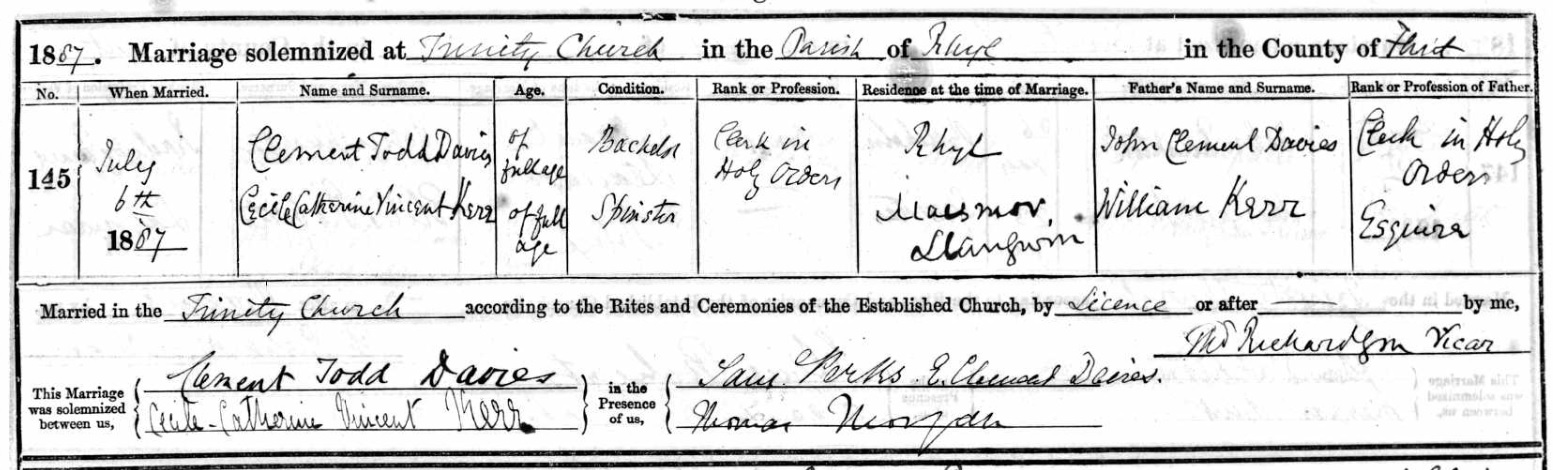 1887. Marriage solemnized at Trinity Church in the Parish of Rhyl in the County of Flint
No. When Married. Name and Surname. Age. Condition. Rank or Profession. Residence at the time of Marriage. Father's Name and Surname. Rank or Profession of Father.
145 July 6th 1887 Clement Todd Davies of full age Bachelor Clerk in Holy Orders Rhyl John Clement Davies Clerk in Holy Orders
Cecile Catherine Vincent Kerr of full age Spinster — Maesmor, Llangwm William Kerr Esquire
Married in the Trinity Church according to the Rites and Ceremonies of the Established Church, by Licence or after — by me,
Thos Richardson Vicar
This Marriage was solemnized between us, Clement Todd Davies in the Presence of us, Saml Perks E. Clement Davies.
Cecile-Catherine Vincent Kerr. Thomas Morgan